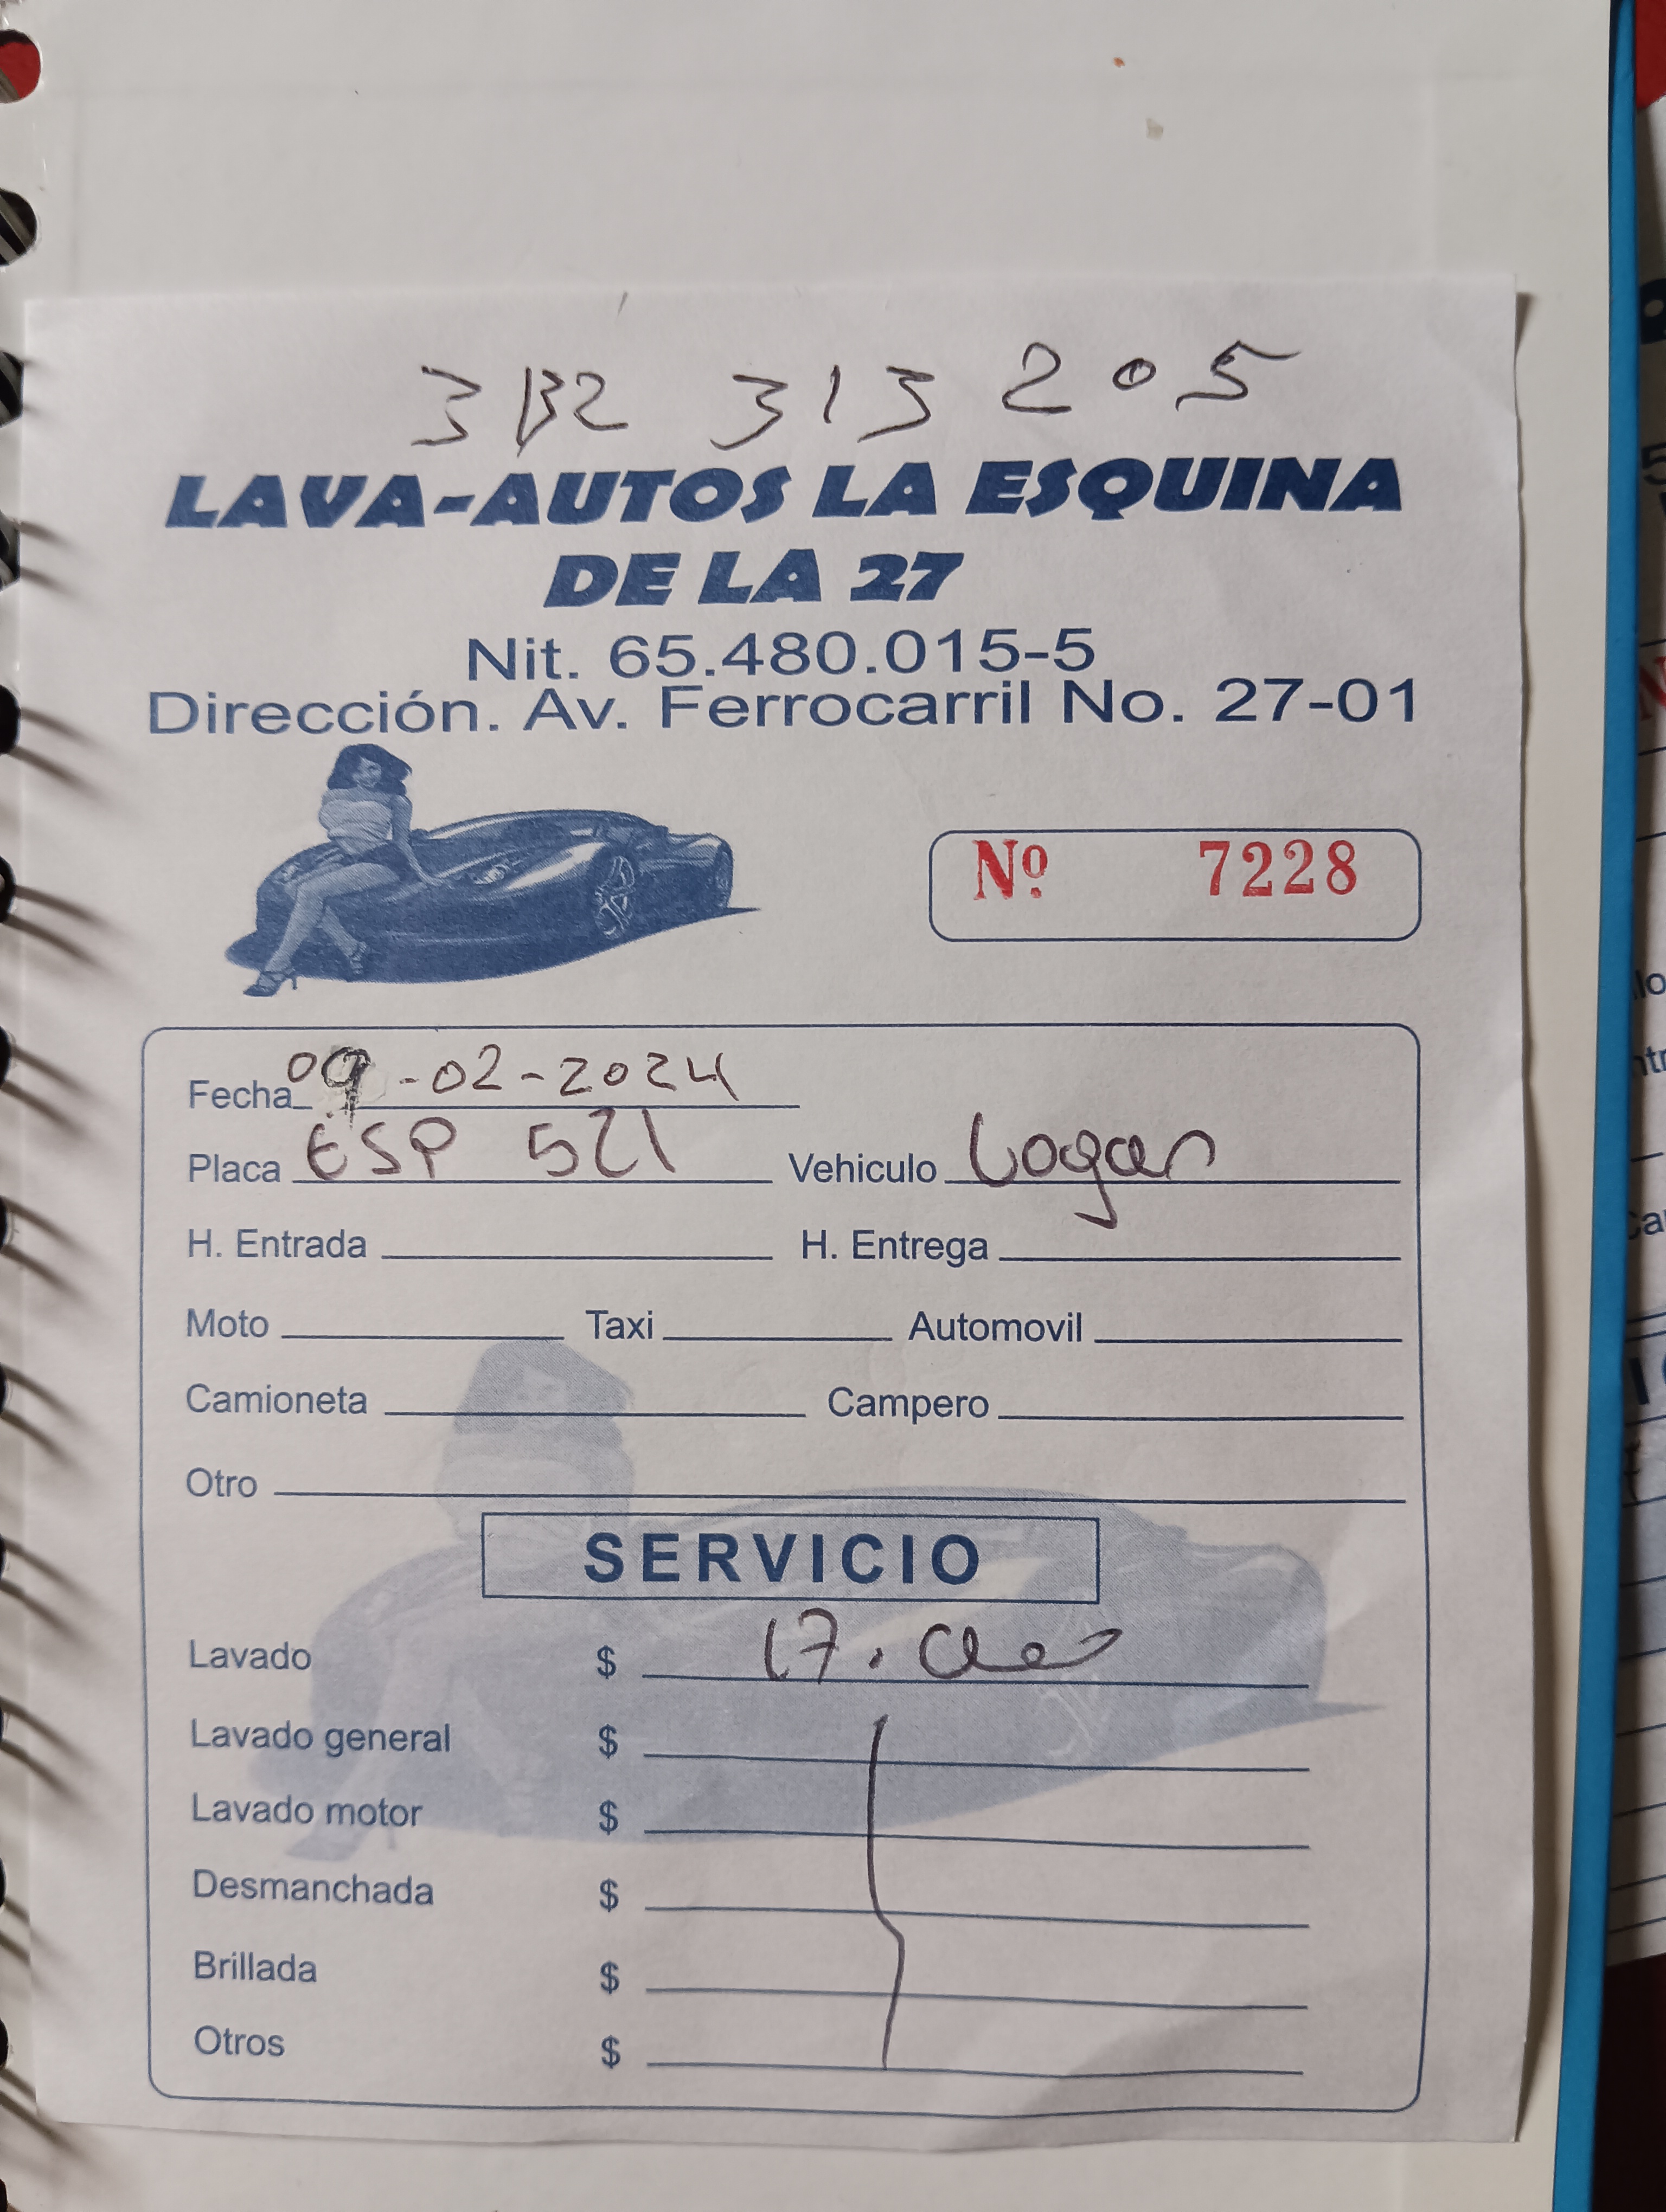 313 205
LAVA-AUTOS LA ESQUINA
DE LA 27
Nit. 65.480.015-5
Dirección. Av. Ferrocarril No. 27-01
Nº 7228
Fecha 09-02-2024
Placa ESP 521 Vehiculo Logan
H. Entrada H. Entrega
Moto Taxi Automovil
Camioneta Campero
Otro
SERVICIO
Lavado $ 17.000
Lavado general $
Lavado motor $
Desmanchada $
Brillada $
Otros $